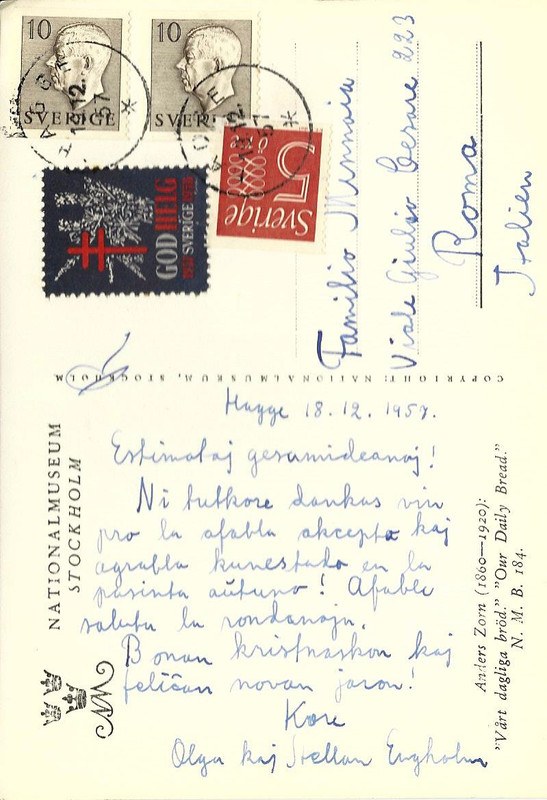 10
SVERIGE
10
SVERIGE
HAGGE
12.
57
12.
57
5
ÖRE
Sverige
GOD HELG
1957 SVERIGE 1958
Familio Minnaja
Viale Giulio Cesare 223
Roma
Italien
COPYRIGHT: NATIONALMUSEUM, STOCKHOLM
NATIONALMUSEUM
STOCKHOLM
NM
Hagge 18.12.1957.
Estimataj gesamideanoj!
Ni tutkore dankas vin
pro la afabla akcepto kaj
agrabla kunestado en la
pasinta aŭtuno! Afable
salutu la rondanojn.
Bonan kristnaskon kaj
feliĉan novan jaron!
Kore
Olga kaj Stellan Engholm
Anders Zorn (1860—1920):
"Vårt dagliga bröd." "Our Daily Bread."
N. M. B. 184.